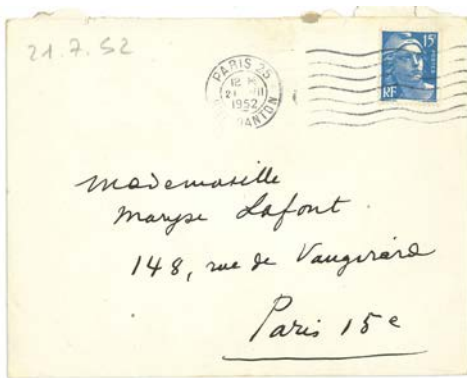 21.7.52
PARIS 25
12 H
21
1952
DANTON
15F
RF
Mademoiselle
Maryse Lafont
148, rue de Vaugirard
Paris 15e